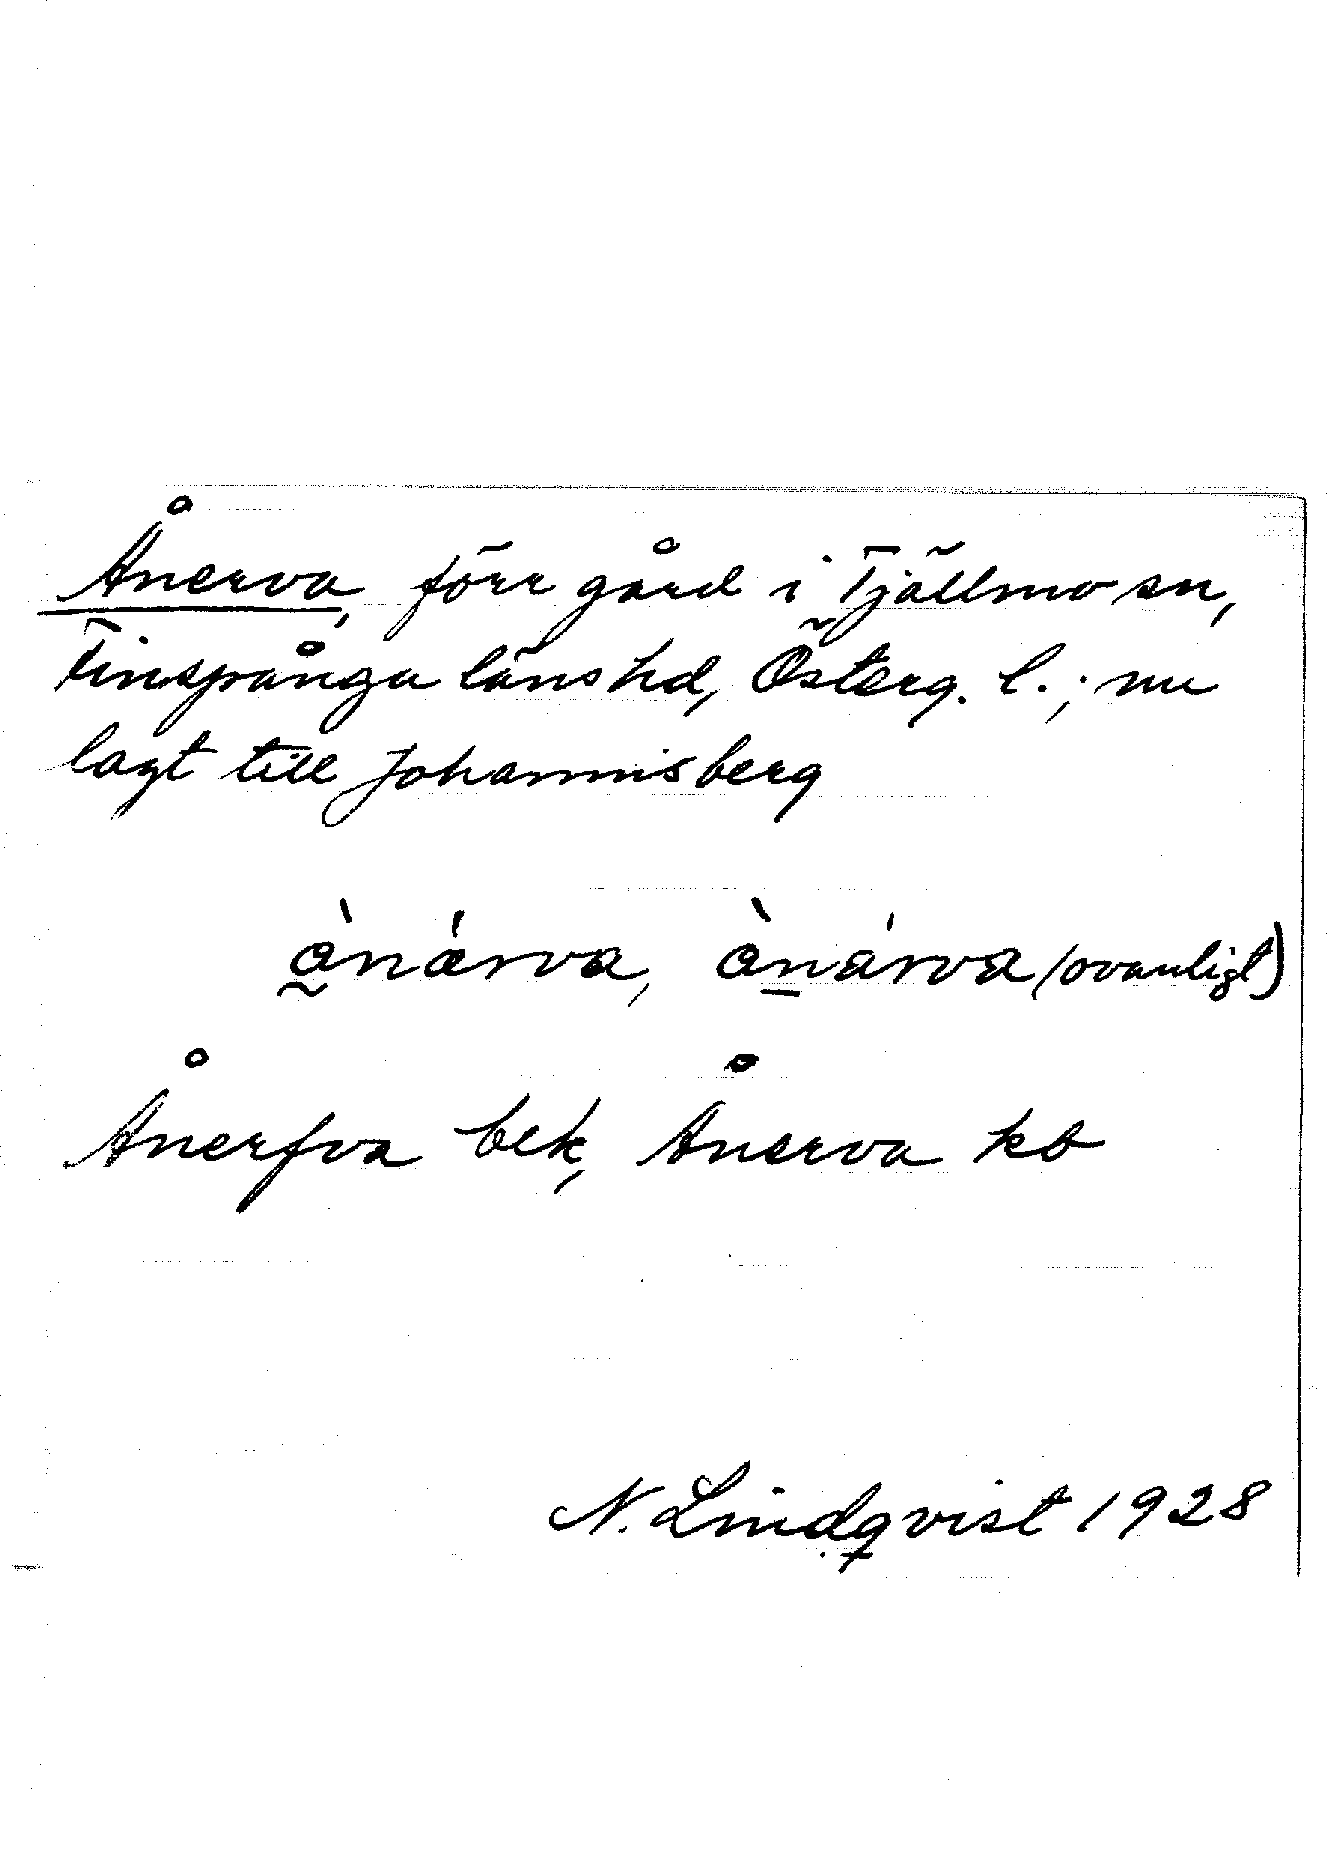 Ånerva, förr gård i Tjällmo sn,
Finspånga läns hd, Österg. l.; nu
lagt till Johannisberg
ànárva, ànárva (ovanligt)
Ånerfva bek, Ånerva kb
N. Lindqvist 1928